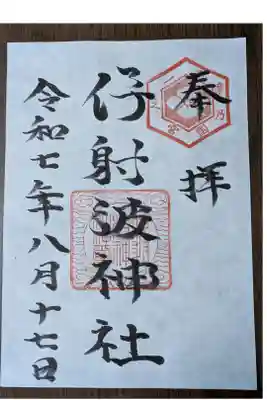 奉拝
伊射波神社
令和七年八月十七日